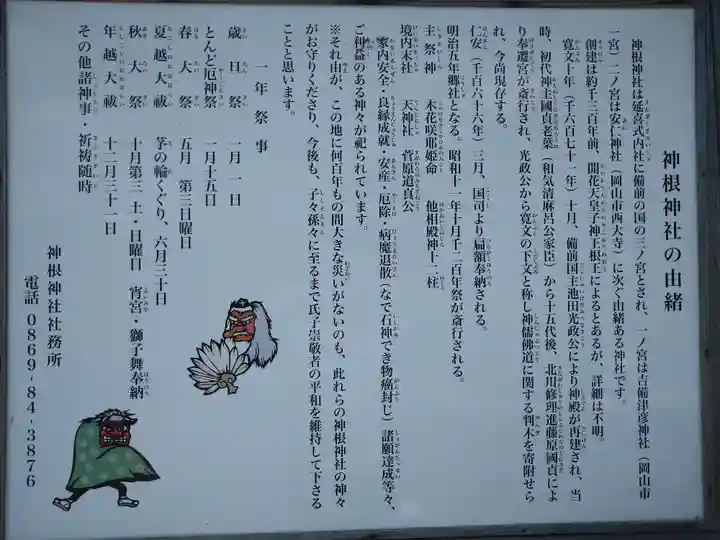 神根神社の由緒
神根神社は延喜式内社に備前の国の三ノ宮とされ、一ノ宮は吉備津彦神社（岡山市
一宮）二ノ宮は安仁神社（岡山市西大寺）に次ぐ由緒ある神社です。
創建は約千三百年前、開花天皇子神王根王によるとあるが、詳細は不明。
寛文十年（千六百七十一年）十月、備前国主池田光政公により神殿が再建され、当
時、初代神主國貞老菜（和気清麻呂公家臣）から十五代後、北川修理進藤原國貞によ
り奉遷宮が斎行され、光政公から寛文の下文と称し神儒佛道に関する判木を寄附せら
れ、今尚現存する。
仁安（千百六十六年）三月、国司より扁額奉納される。
明治五年郷社となる。昭和十一年十月千二百年祭が斎行される。
主祭神　木花咲耶姫命　他相殿神十二柱
境内末社　天神社　菅原道真公
家内安全・良縁成就・安産・厄除・病魔退散（なで石神でき物癌封じ）諸願達成等々、
ご利益のある神々が祀られています。
※それ由が、この地に何百年もの間大きな災いがないのも、此れらの神根神社の神々
がお守りくださり、今後も、子々孫々に至るまで氏子崇敬者の平和を維持して下さる
ことと思います。
一年祭事
歳旦祭　一月一日
とんど厄神祭　一月十五日
春大祭　五月　第三日曜日
夏越大祓　茅の輪くぐり、六月三十日
秋大祭　十月第三　土・日曜日　宵宮・獅子舞奉納
年越大祓　十二月三十一日
その他諸神事・祈祷随時
神根神社社務所
電話 0869-84-3876